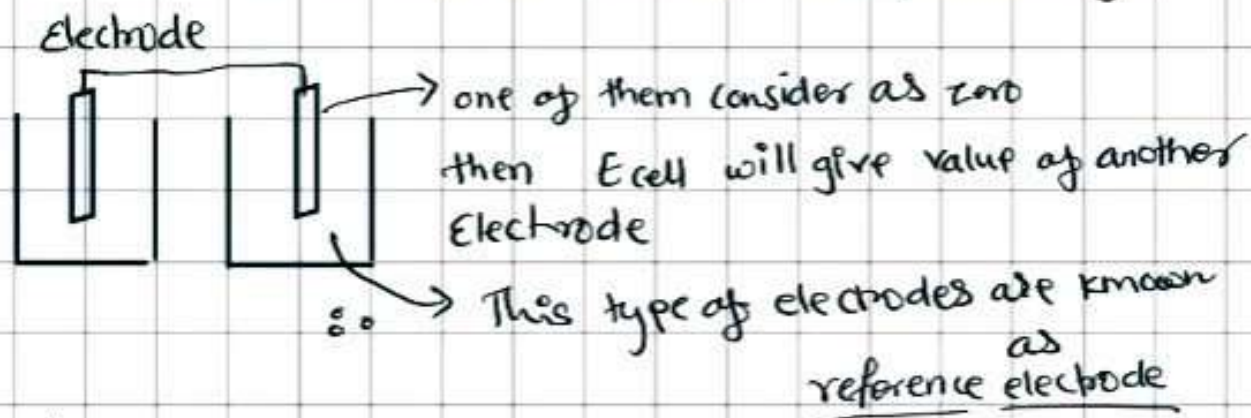 Electrode
→ one of them consider as zero
then Ecell will give value of another
Electrode
∴ → This type of electrodes are known
as
reference electrode